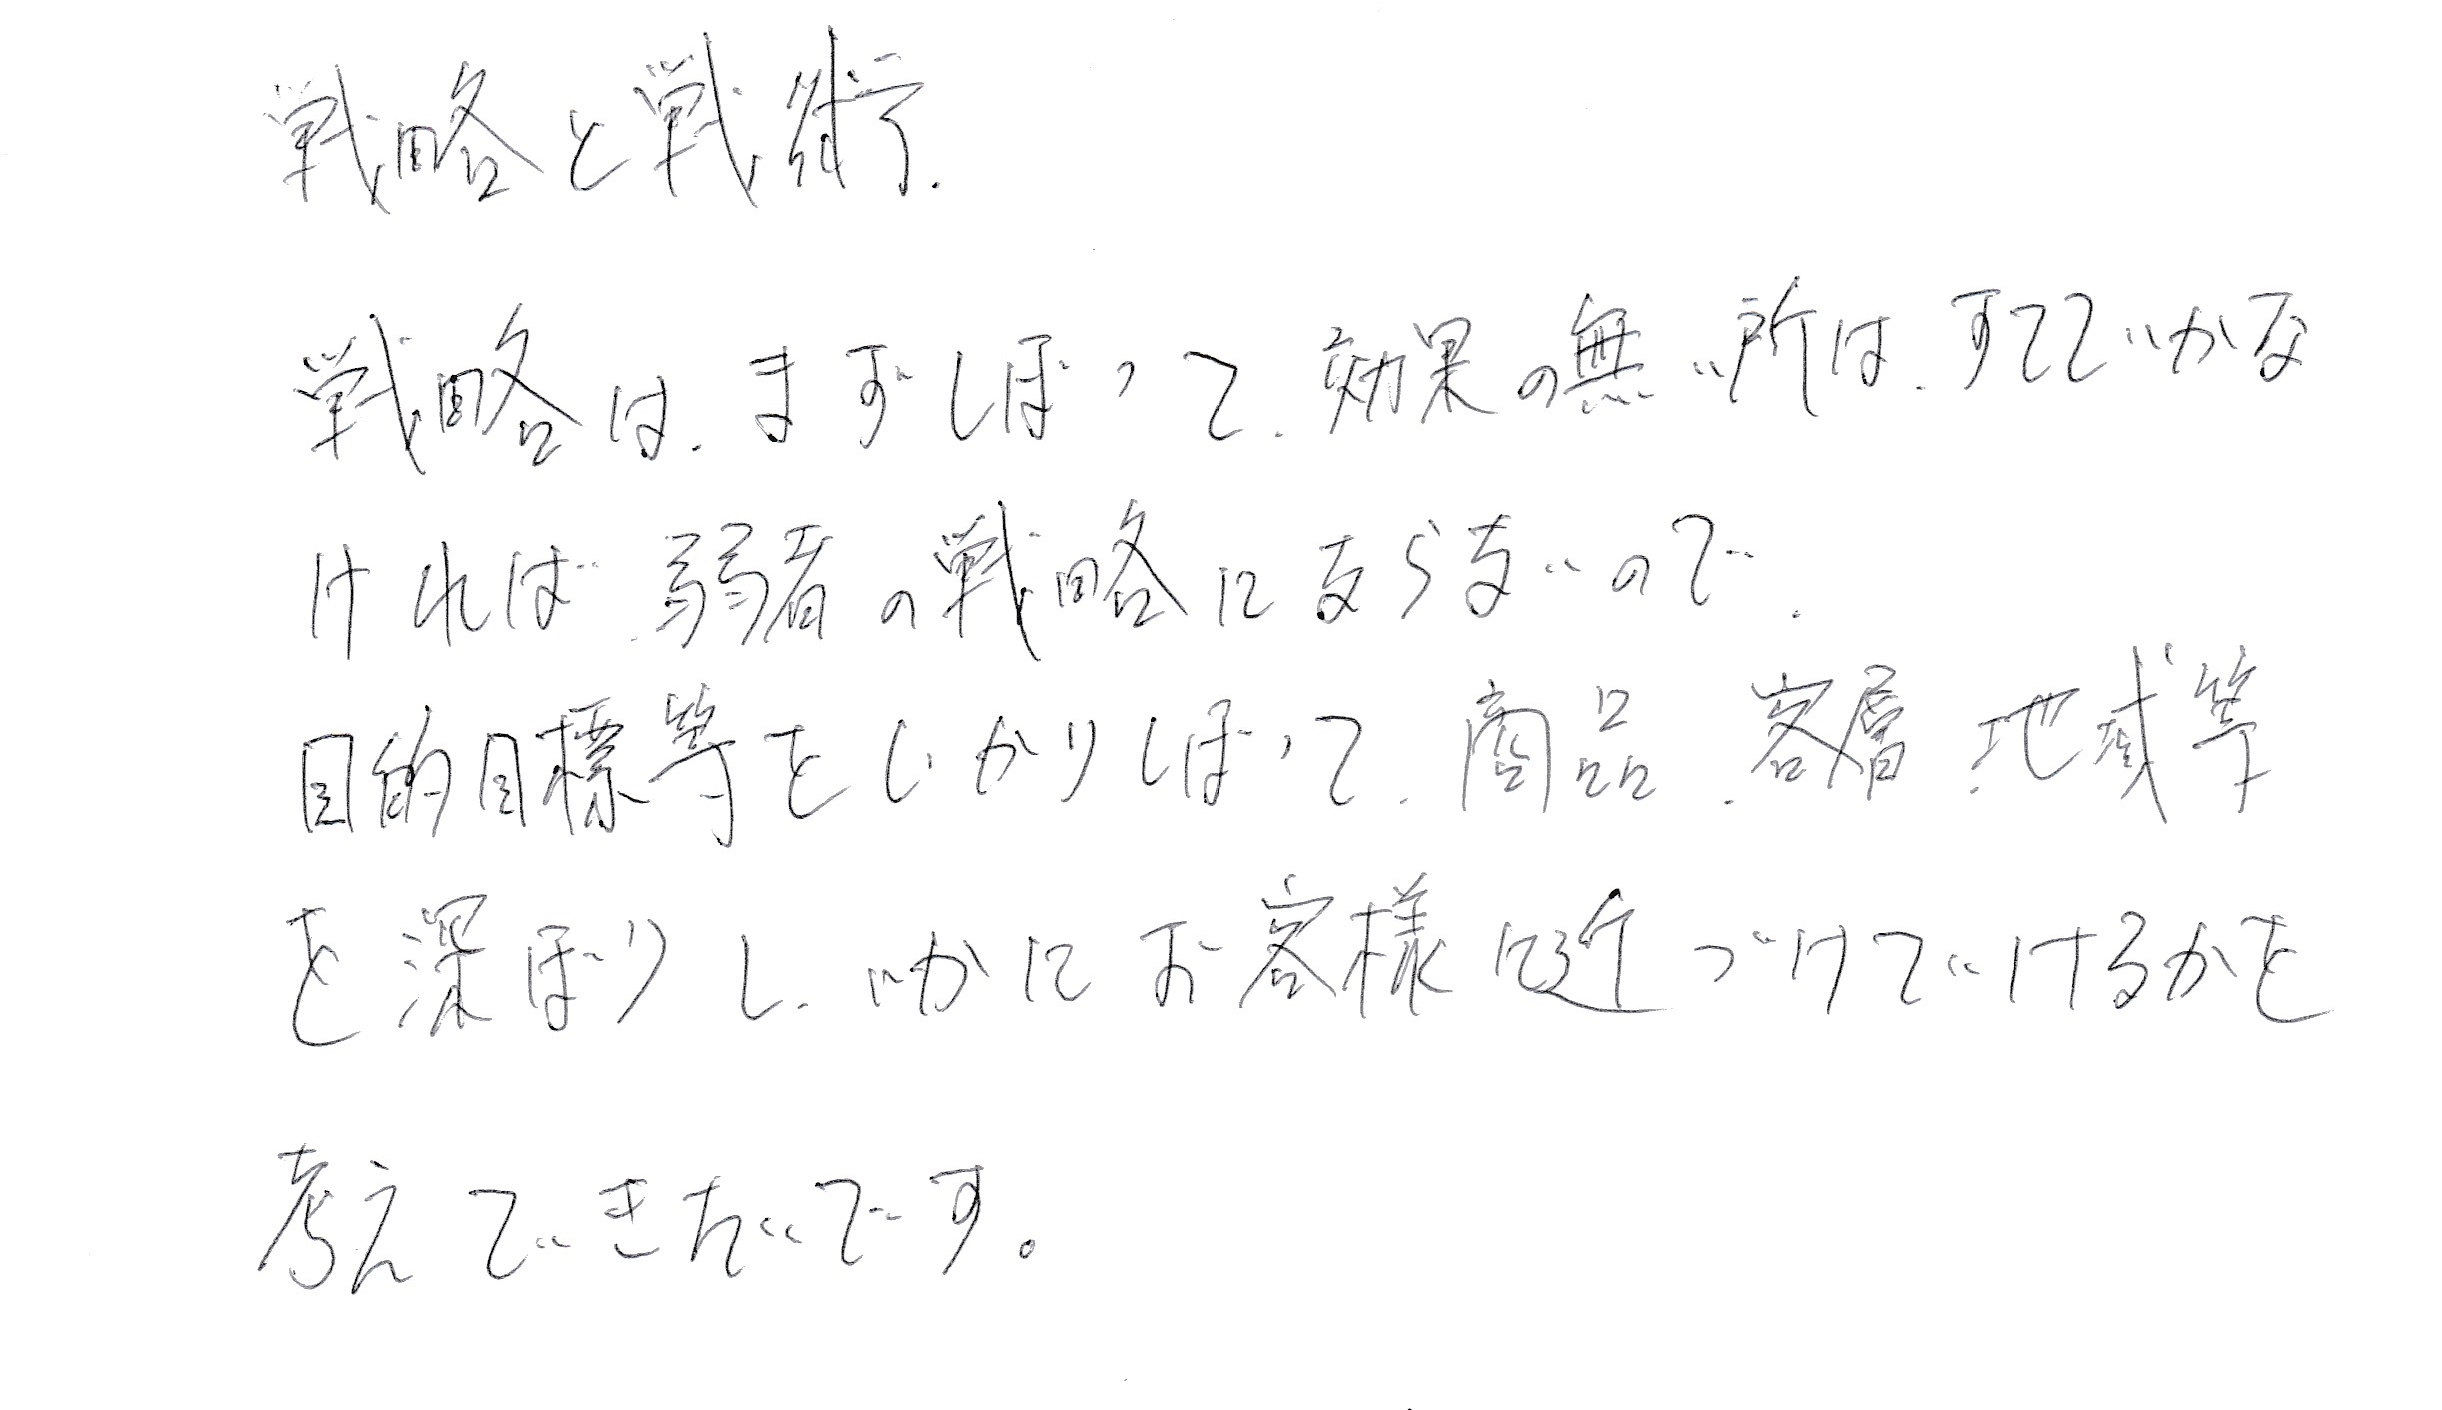 戦略と戦術、
戦略は、まずしぼって、効果の無い所は、すてていかな
ければ、弱者の戦略にならないので、
目的目標等をしっかりしぼって、商品、客層、地域等
を深ぼりし、いかにお客様に近づけていけるかを
考えていきたいです。